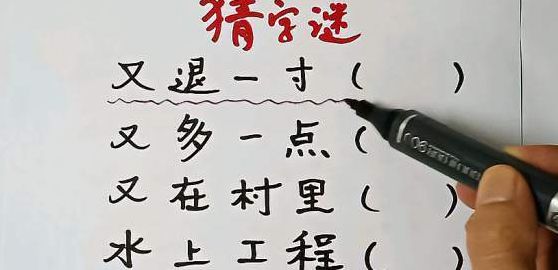 猜字谜
又退一寸（ ）
又多一点（
又在村里（ ）
水上工程（ ）